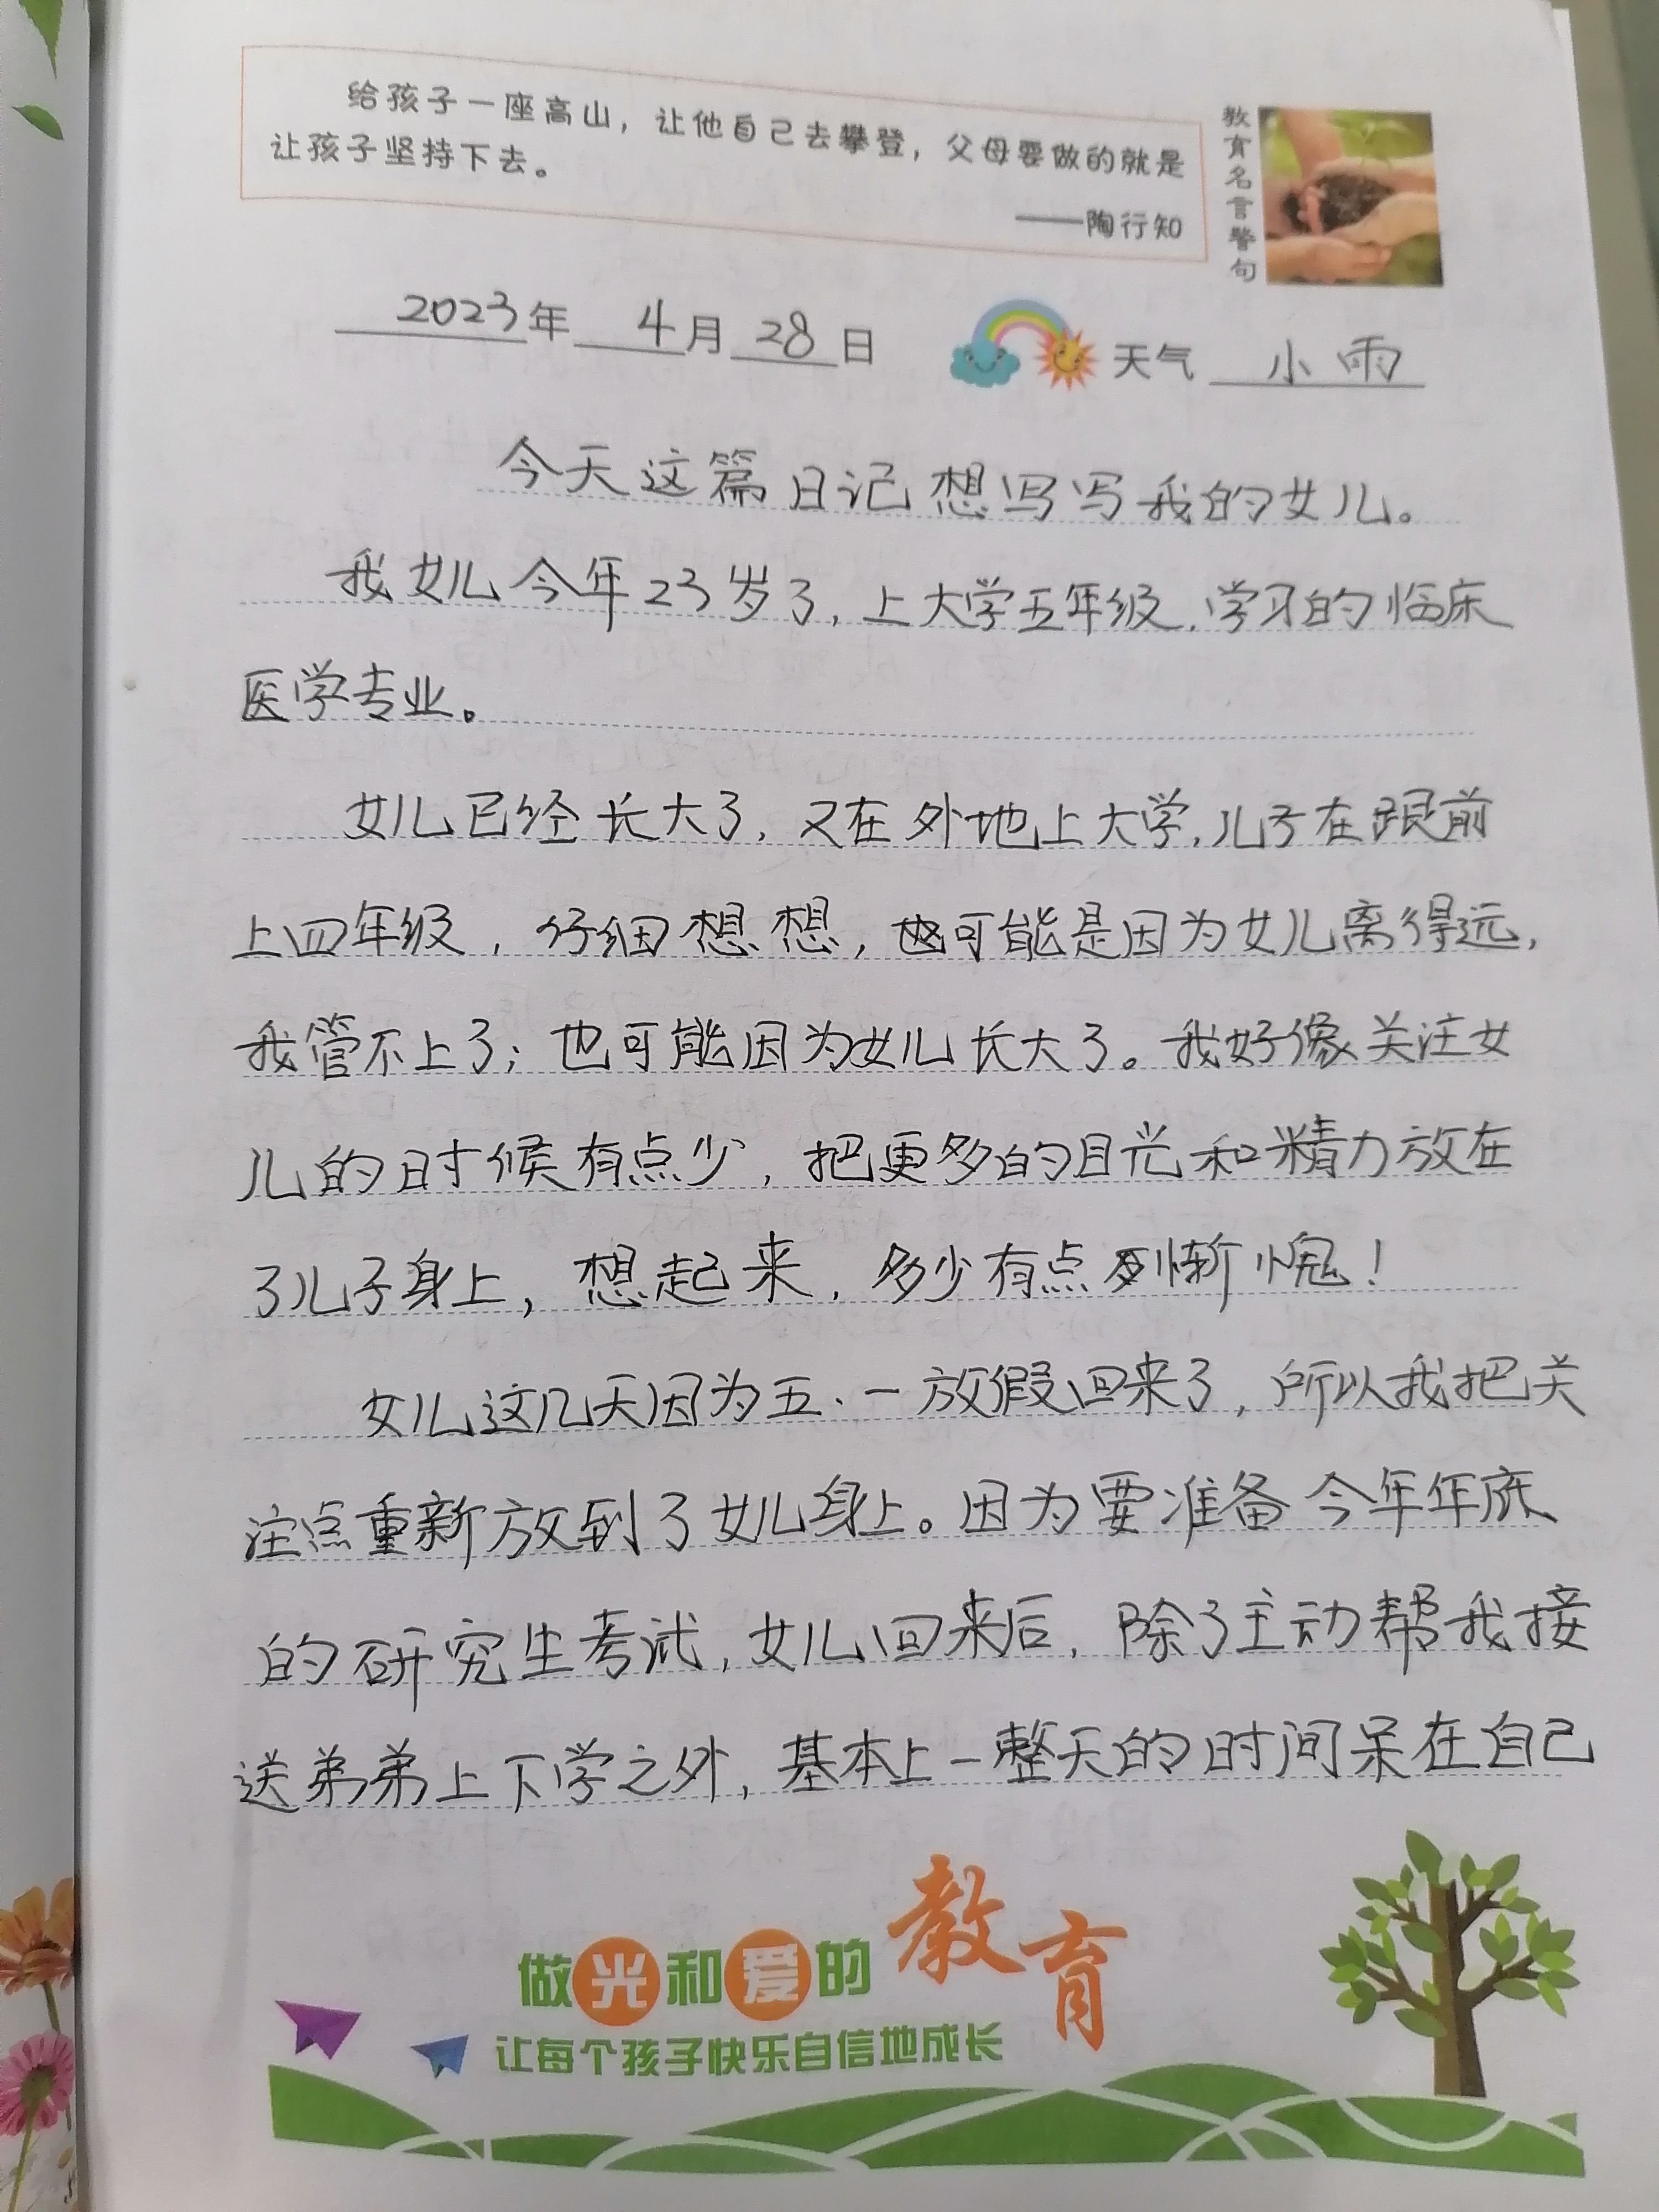 给孩子一座高山，让他自己去攀登，父母要做的就是
让孩子坚持下去。
——陶行知
教育名言警句
2023年 4月28日 天气 小雨
今天这篇日记想写写我的女儿。
我女儿今年23岁了，上大学五年级，学习的临床
医学专业。
女儿已经长大了，又在外地上大学，儿子在跟前
上四年级，仔细想想，也可能是因为女儿离得远，
我管不上了；也可能因为女儿长大了。我好像关注女
儿的时候有点少，把更多的目光和精力放在
了儿子身上，想起来，多少有点惭愧！
女儿这几天因为五、一放假回来了，所以我把关
注点重新放到了女儿身上。因为要准备今年年底
的研究生考试，女儿回来后，除了主动帮我接
送弟弟上下学之外，基本上一整天的时间呆在自己
做光和爱的教育
让每个孩子快乐自信地成长